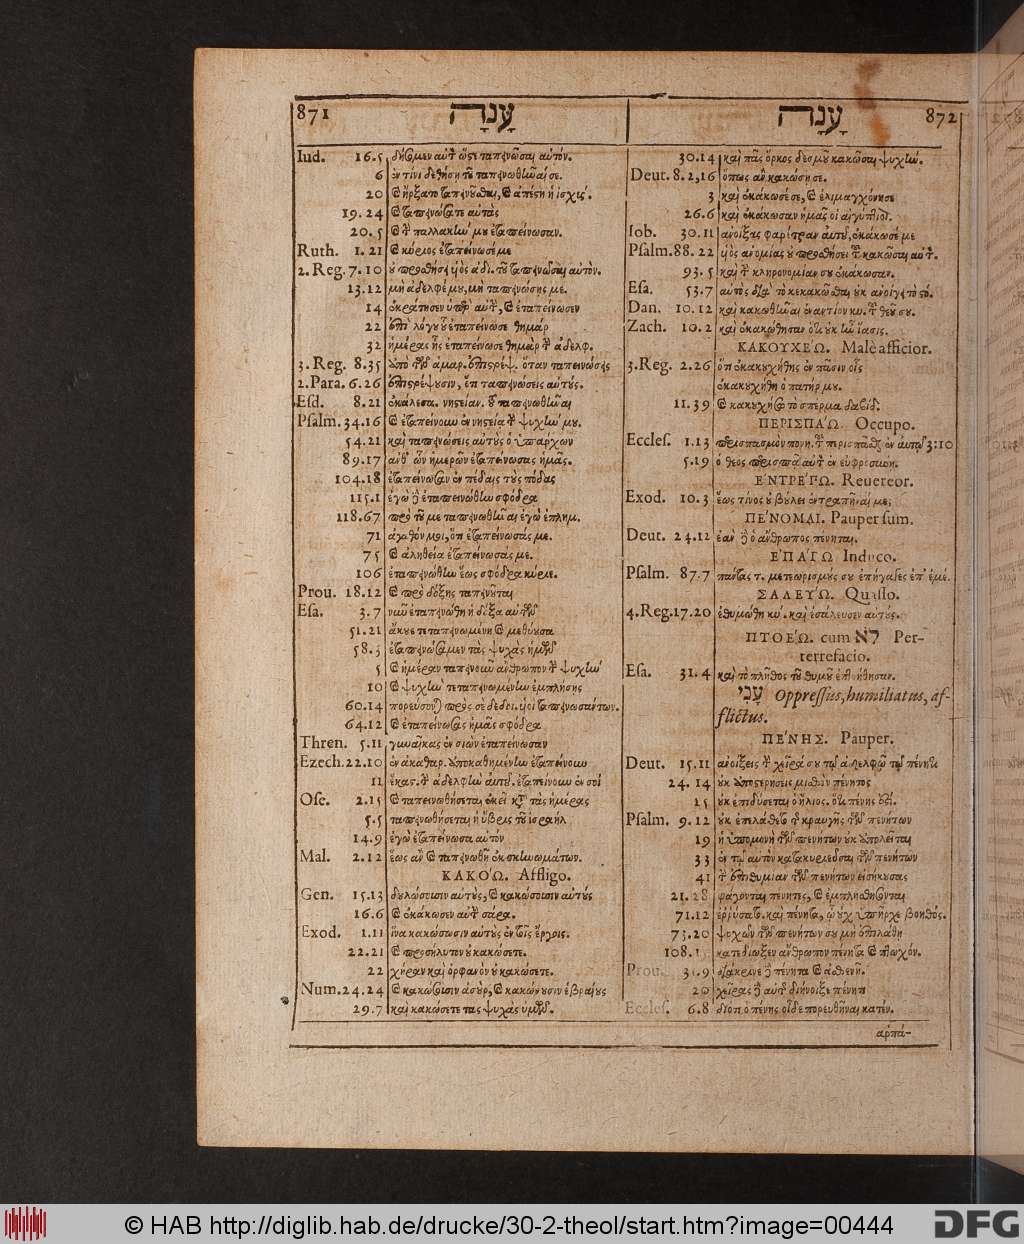 871 עָנָה
Iud. 16.5 δήσωμεν αὐτὸν ὥστε ταπεινῶσαι αὐτόν.
6 ἐν τίνι δεθήσῃ τοῦ ταπεινωθῆναί σε.
20 καὶ ἤρξατο ταπεινοῦσθαι, καὶ ἀπέστη ἡ ἰσχὺς.
19.24 καὶ ταπεινώσατε αὐτὰς
20.5 καὶ τὴν παλλακήν μου ἐταπείνωσαν.
Ruth. 1.21 καὶ κύριος ἐταπείνωσέ με
2.Reg. 7.10 οὐ προσθήσει υἱὸς ἀδι. τοῦ ταπεινῶσαι αὐτὸν.
13.12 μὴ ἀδελφέ μου, μὴ ταπεινώσῃς με.
14 ἐκράτησεν ὑπὲρ αὐτὴν, καὶ ἐταπείνωσεν
22 ἐπὶ λόγου οὗ ἐταπείνωσε θημάρ
32 ἡμέρας ἧς ἐταπείνωσε θημὰρ τὴν ἀδελφ.
3. Reg. 8.35 ἀπὸ τῶν ἁμαρ. ἐπιστρέψ. ὅταν ταπεινώσῃς
2.Para. 6.26 ἐπιστρέψουσιν, ὅτι ταπεινώσεις αὐτούς.
Esd. 8.21 ἐκάλεσα. νηστείαν. τοῦ ταπεινωθῆναι
Psalm. 34.16 καὶ ἐταπείνουν ἐν νηστείᾳ τὴν ψυχήν μου.
54.21 καὶ ταπεινώσεις αὐτοὺς ὁ ὑπάρχων
89.17 ἀνθ' ὧν ἡμερῶν ἐταπείνωσας ἡμᾶς.
104.18 ἐταπείνωσαν ἐν πέδαις τοὺς πόδας
115.1 ἐγὼ δὲ ἐταπεινώθην σφόδρα
118.67 πρὸ τοῦ με ταπεινωθῆναι ἐγὼ ἐπλημ.
71 ἀγαθόν μοι, ὅτι ἐταπείνωσάς με.
75 καὶ ἀληθείᾳ ἐταπείνωσάς με.
106 ἐταπεινώθην ἕως σφόδρα κύριε.
Prou. 18.12 καὶ πρὸ δόξης ταπεινοῦται
Esa. 3.7 ναῦ ἐταπεινώθη ἡ δόξα αὐτῶν
51.21 ἄκουε τεταπεινωμένη καὶ μεθύουσα
58.3 ἐταπεινώσαμεν τὰς ψυχὰς ἡμῶν
5 καὶ ἡμέραν ταπεινοῦν ἄνθρωπον τὴν ψυχὴν
10 καὶ ψυχὴν τεταπεινωμένην ἐμπλήσῃς
60.14 πορεύσονται πρὸς σὲ δεδοι. υἱοὶ ταπεινωσάντων.
64.12 καὶ ἐταπείνωσας ἡμᾶς σφόδρα
Thren. 5.11 γυναῖκας ἐν σιὼν ἐταπείνωσαν
Ezech. 22.10 ἐν ἀκαθαρ. ἀποκαθημένην ἐταπείνουν
11 ἕκας. τὴν ἀδελφὴν αὐτοῦ. ἐταπείνουν ἐν σοὶ
Ose. 2.15 καὶ ταπεινωθήσεται ἐκεῖ κατὰ τὰς ἡμέρας
5.5 ταπεινωθήσεται ἡ ὕβρις τοῦ ἰσραὴλ
14.9 ἐγὼ ἐταπείνωσα αὐτὸν
Mal. 2.12 ἕως ἂν καὶ ταπεινωθῇ ἐκ σκηνωμάτων.
ΚΑΚΟΏ. Affligo.
Gen. 15.13 δουλώσουσιν αὐτοὺς, καὶ κακώσουσιν αὐτοὺς
16.6 καὶ ἐκάκωσεν αὐτὴν σάρα.
Exod. 1.11 ἵνα κακώσωσιν αὐτοὺς ἐν τοῖς ἔργοις.
22.21 καὶ προσήλυτον οὐ κακώσετε.
22 χήραν καὶ ὀρφανὸν οὐ κακώσετε.
Num. 24.24 καὶ κακώσουσιν ἀσοὺρ, καὶ κακώσουσιν ἑβραίους
29.7 καὶ κακώσετε τὰς ψυχὰς ὑμῶν.
עָנָה 872
30.14 καὶ πᾶς ὅρκος δεσμοῦ κακῶσαι ψυχήν.
Deut. 8.2,16 ὅπως ἂν κακώσῃ σε.
3 καὶ ἐκάκωσέ σε, καὶ ἐλιμαγχόνησε
26.6 καὶ ἐκάκωσαν ἡμᾶς οἱ αἰγύπτιοι.
Iob. 30.11 ἀνοίξας φαρέτραν αὐτοῦ, ἐκάκωσέ με
Psalm. 88.22 υἱὸς ἀνομίας οὐ προσθήσει τοῦ κακῶσαι αὐτ.
93.5 καὶ τὴν κληρονομίαν σου ἐκάκωσαν.
Esa. 53.7 αὐτὸς διὰ τὸ κεκακῶσθαι οὐκ ἀνοίγει τὸ στό.
Dan. 10.12 καὶ κακωθῆναι ἐναντίον κυ. τοῦ θεοῦ σου.
Zach. 10.2 καὶ ἐκακώθησαν ὅτι οὐκ ἦν ἴασις.
ΚΑΚΟΥΧΕΏ. Malè afficior.
3.Reg. 2.26 ὅτι ἐκακουχήθης ἐν πᾶσιν οἷς
ἐκακουχήθη ὁ πατήρ μου.
11.39 καὶ κακουχήσω τὸ σπέρμα δαβίδ.
ΠΕΡΙΣΠΆΩ. Occupo.
Eccles. 1.13 περισπασμὸν πονη. τοῦ περισπᾶσθαι ἐν αὐτῷ 3:10
5.19 ὁ θεὸς περισπᾷ αὐτὸν ἐν εὐφροσύνῃ.
ἘΝΤΡΈΠΩ. Reuereor.
Exod. 10.3 ἕως τίνος οὐ βούλει ἐντραπῆναί με;
ΠΈΝΟΜΑΙ. Pauper sum.
Deut. 24.12 ἐὰν δὲ ὁ ἄνθρωπος πένηται.
ἘΠΆΓΩ Induco.
Psalm. 87.7 πάντας τ. μετεωρισμούς σου ἐπήγαγες ἐπ' ἐμέ.
ΣΑΛΕΎΩ. Quasso.
4.Reg. 17.20 ἐθυμώθη κύ. καὶ ἐσάλευσεν αὐτούς.
ΠΤΟΕΏ. cum לא Per-
terrefacio.
Esa. 31.4 καὶ τὸ πλῆθος τοῦ θυμοῦ ἐπτοήθησαν.
עָנִי Oppressus, humiliatus, af-
flictus.
ΠΈΝΗΣ. Pauper.
Deut. 15.11 ἀνοίξεις τὰς χεῖράς σου τῷ ἀδελφῷ τῷ πένητι
24.14 οὐκ ἀποστερήσεις μισθὸν πένητος
15 οὐκ ἐπιδύσεται ὁ ἥλιος. ὅτι πένης ἐστί.
Psalm. 9.12 οὐκ ἐπελάθετο τῆς κραυγῆς τῶν πενήτων
19 ἡ ὑπομονὴ τῶν πενήτων οὐκ ἀπολεῖται
33 ἐν τῷ αὐτὸν κατακυριεῦσαι τῶν πενήτων
41 τὴν ἐπιθυμίαν τῶν πενήτων εἰσήκουσας
21.28 φάγονται πένητες, καὶ ἐμπλησθήσονται
71.12 ἐῤῥύσατο. καὶ πένητα, ᾧ οὐχ ὑπῆρχε βοηθός.
73.20 ψυχῶν τῶν πενήτων σου μὴ ἐπιλάθῃ
108.15 κατεδίωξεν ἄνθρωπον πένητα καὶ πτωχόν.
Prou. 31.9 διάκρινε δὲ πένητα καὶ ἀσθενῆ.
20 χεῖρας δὲ αὐτῆς διήνοιξε πένητι
Eccles. 6.8 διότι ὁ πένης οἶδε πορευθῆναι κατέν.
ἁρπά-
© HAB http://diglib.hab.de/drucke/30-2-theol/start.htm?image=00444
DFG